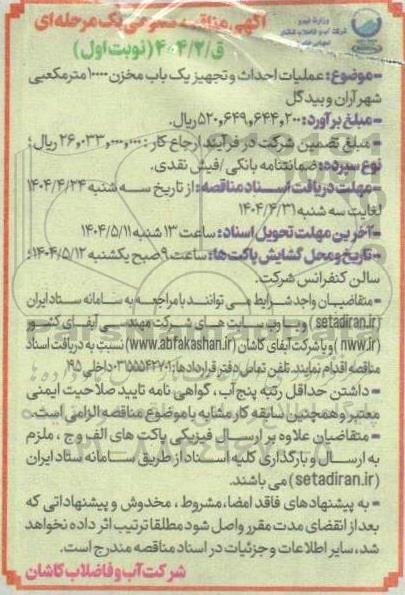 وزارت نیرو
شرکت آب و فاضلاب کاشان
آگهی مناقصه عمومی یک مرحله‌ای
ق/۴۰۴/۲ (نوبت اول)
- موضوع: عملیات احداث و تجهیز یک باب مخزن ۱۰۰۰۰ مترمکعبی
شهر آران و بیدگل
- مبلغ برآورد: ۵۲۰,۶۴۹,۶۴۴,۲۰۰ ریال.
- مبلغ تضمین شرکت در فرآیند ارجاع کار: ۲۶,۰۳۳,۰۰۰,۰۰۰ ریال؛
نوع سپرده: ضمانتنامه بانکی/فیش نقدی.
- مهلت دریافت اسناد مناقصه: از تاریخ سه شنبه ۱۴۰۴/۴/۲۴
لغایت سه شنبه ۱۴۰۴/۴/۳۱
- آخرین مهلت تحویل اسناد: ساعت ۱۳ شنبه ۱۴۰۴/۵/۱۱
- تاریخ و محل گشایش پاکت‌ها: ساعت ۹ صبح یکشنبه ۱۴۰۴/۵/۱۲؛
سالن کنفرانس شرکت.
- متقاضیان واجد شرایط می توانند با مراجعه به سامانه ستاد ایران
(setadiran.ir) و یا وب سایت های شرکت مهندسی آبفای کشور
(nww.ir) و یا شرکت آبفای کاشان (www.abfakashan.ir) نسبت به دریافت اسناد
مناقصه اقدام نمایند. تلفن تماس دفتر قراردادها: ۰۳۱۵۵۵۴۲۷۰۱ داخلی ۱۹۵
- داشتن حداقل رتبه پنج آب، گواهی نامه تایید صلاحیت ایمنی
معتبر و همچنین سابقه کار مشابه با موضوع مناقصه الزامی است.
- متقاضیان علاوه بر ارسال فیزیکی پاکت های الف و ج، ملزم
به ارسال و بارگذاری کلیه اسناد از طریق سامانه ستاد ایران
(setadiran.ir) می باشند.
- به پیشنهادهای فاقد امضا، مشروط، مخدوش و پیشنهاداتی که
بعد از انقضای مدت مقرر واصل شود مطلقا ترتیب اثر داده نخواهد
شد، سایر اطلاعات و جزئیات در اسناد مناقصه مندرج است.
شرکت آب و فاضلاب کاشان